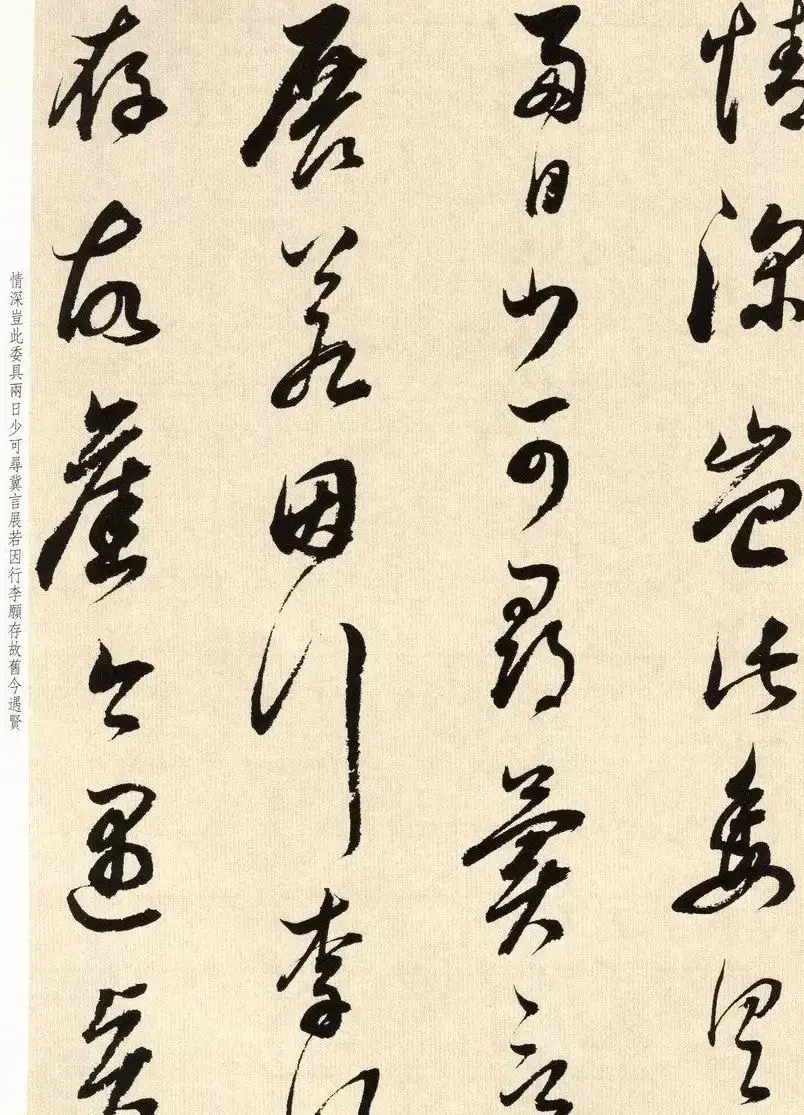 情深豈此委具
兩日少可尋冀言
展若因行李願
存故舊今遇賢
情深豈此委具兩日少可尋冀言展若因行李願存故舊今遇賢